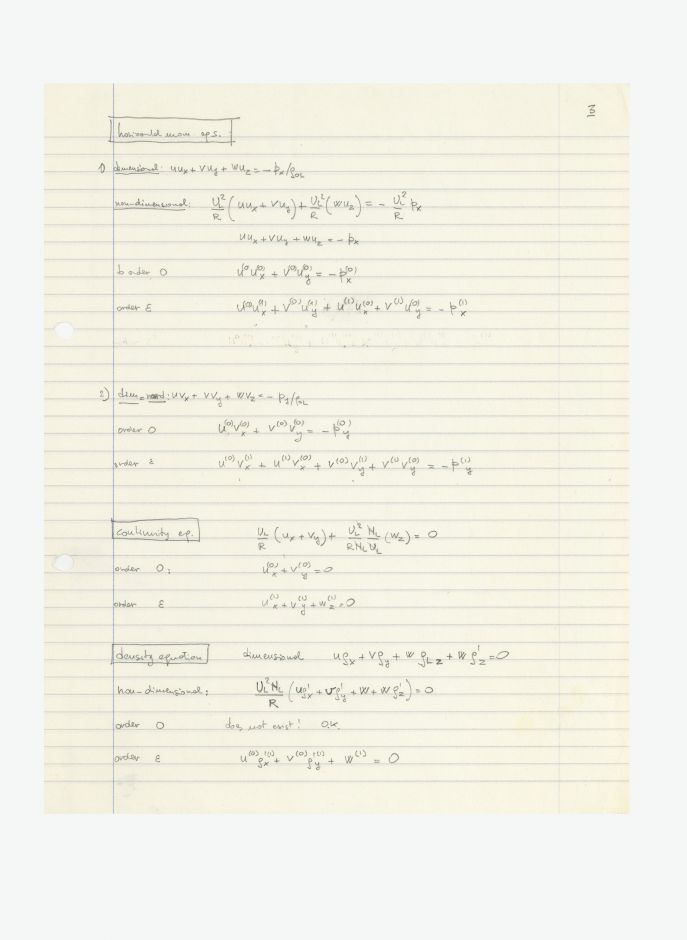 10
horizontal mom eqs.
1) dimensional: uu_x + vu_y + wu_z = -p_x/ρ_0L
non-dimensional: U_L²/R (uu_x + vu_y) + U_L²/R (wu_z) = - U_L²/R p_x
uu_x + vu_y + wu_z = -p_x
to order 0 u^(0)u_x^(0) + v^(0)u_y^(0) = -p_x^(0)
order ε u^(0)u_x^(1) + v^(0)u_y^(1) + u^(1)u_x^(0) + v^(1)u_y^(0) = -p_x^(1)
2) dim = : uv_x + vv_y + wv_z = - p_y/ρ_0L
order 0 u^(0)v_x^(0) + v^(0)v_y^(0) = -p_y^(0)
order ε u^(0)v_x^(1) + u^(1)v_x^(0) + v^(0)v_y^(1) + v^(1)v_y^(0) = -p_y^(1)
continuity eq. U_L/R (u_x + v_y) + U_L²/(RN_L) N_L/U_L (w_z) = 0
order 0: u_x^(0) + v_y^(0) = 0
order ε u_x^(1) + v_y^(1) + w_z^(1) = 0
density equation dimensional uρ_x + vρ_y + wρ_Lz + wρ'_z = 0
non-dimensional: U_L²N_L/R (uρ'_x + vρ'_y + w + wρ'_z) = 0
order 0 does not exist! O.K.
order ε u^(0)ρ'_x^(1) + v^(0)ρ'_y^(1) + w^(1) = 0